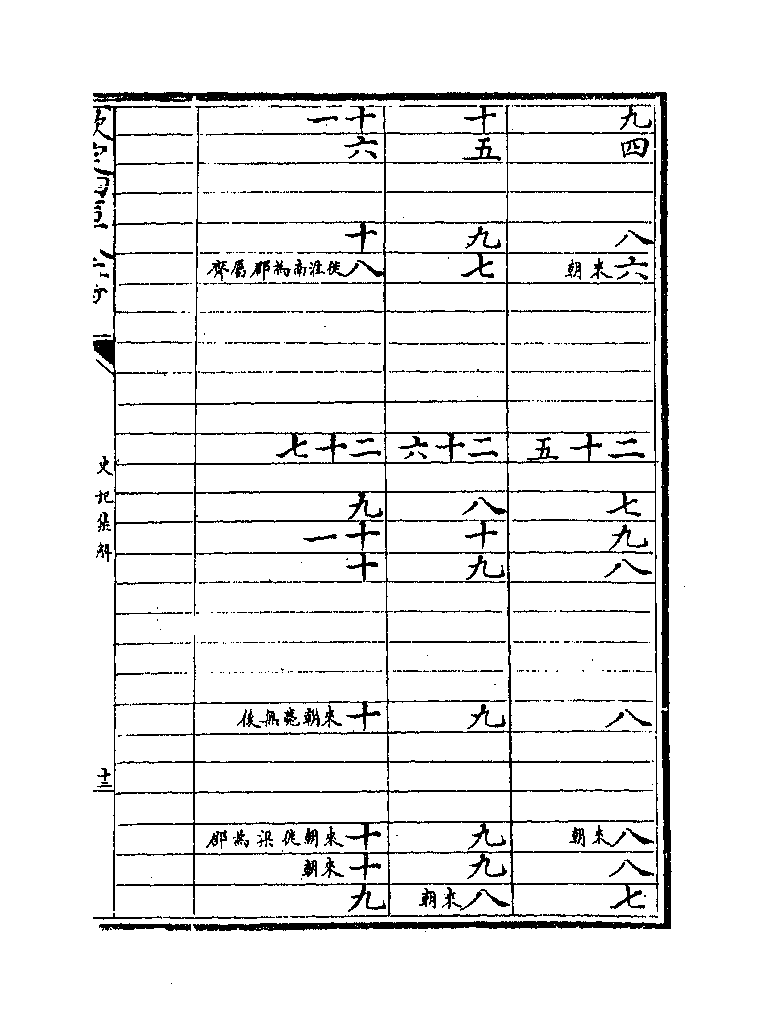 九
四
八
六來朝
二十五
七
九
八
八
八來朝
八
七
十
五
九
七
二十六
八
十
九
九
九
九
八來朝
十一
六
十
八徙淮南為郡屬齊
二十七
九
十一
十
十來朝薨無後
十來朝徙梁為郡
十來朝
九
欽定四庫全書
史記集解